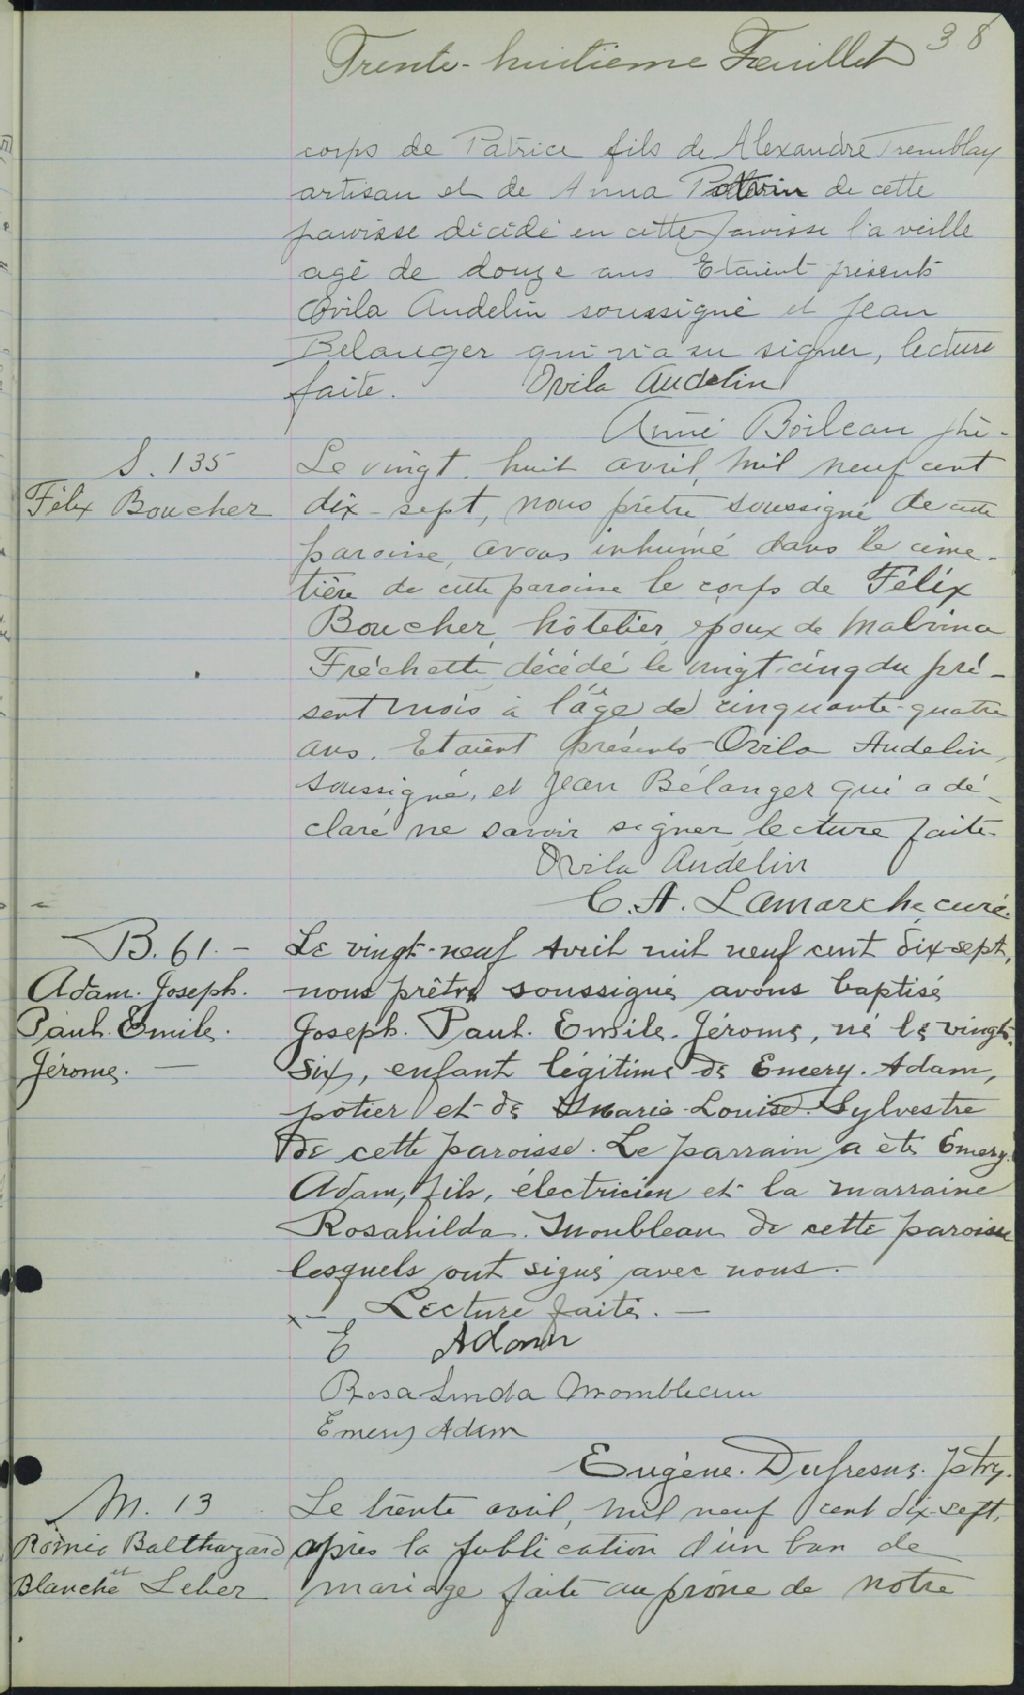 38
Trente-huitieme Feuillet
corps de Patrice fils de Alexandre Tremblay
artisan et de Anna Potvin de cette
paroisse décédé en cette paroisse la veille
agé de douze ans Etaient présents
Ovila Audelin soussigné et Jean
Belanger qui n'a su signer, lecture
faite. Ovila Audelin
Aimé Boileau ptre.
S. 135
Félix Boucher
Le vingt huit avril, mil neuf cent
dix-sept, nous prêtre soussigné de cette
paroisse, avons inhumé dans le cime-
tière de cette paroisse le corps de Félix
Boucher, hôtelier, époux de Malvina
Fréchette, décédé le vingt-cinq du pré-
sent mois à l'âge de cinquante-quatre
ans. Etaient présents Ovila Audelin,
soussigné, et Jean Bélanger qui a dé-
claré ne savoir signer, lecture faite.
Ovila Audelin
C. A. Lamarche, curé.
B. 61. -
Adam. Joseph.
Paul. Emile.
Jérome. —
Le vingt-neuf Avril mil neuf cent dix-sept,
nous prêtre soussigné avons baptisé
Joseph. Paul. Emile. Jérome, né le vingt-
six, enfant légitime de Emery. Adam,
potier et de Marie-Louise. Sylvestre
de cette paroisse. Le parrain a été Emery.
Adam, fils, électricien et la marraine
Rosahilda. Mombleau de cette paroisse
lesquels ont signé avec nous.
— Lecture faite. —
E Adam
Rosa Linda Mombleau
Emery Adam
Eugène. Dufresne. Ptre.
M. 13
Roméo Balthazard
et
Blanche Leber
Le trente avril, mil neuf cent dix-sept,
après la publication d'un ban de
mariage faite au prône de notre